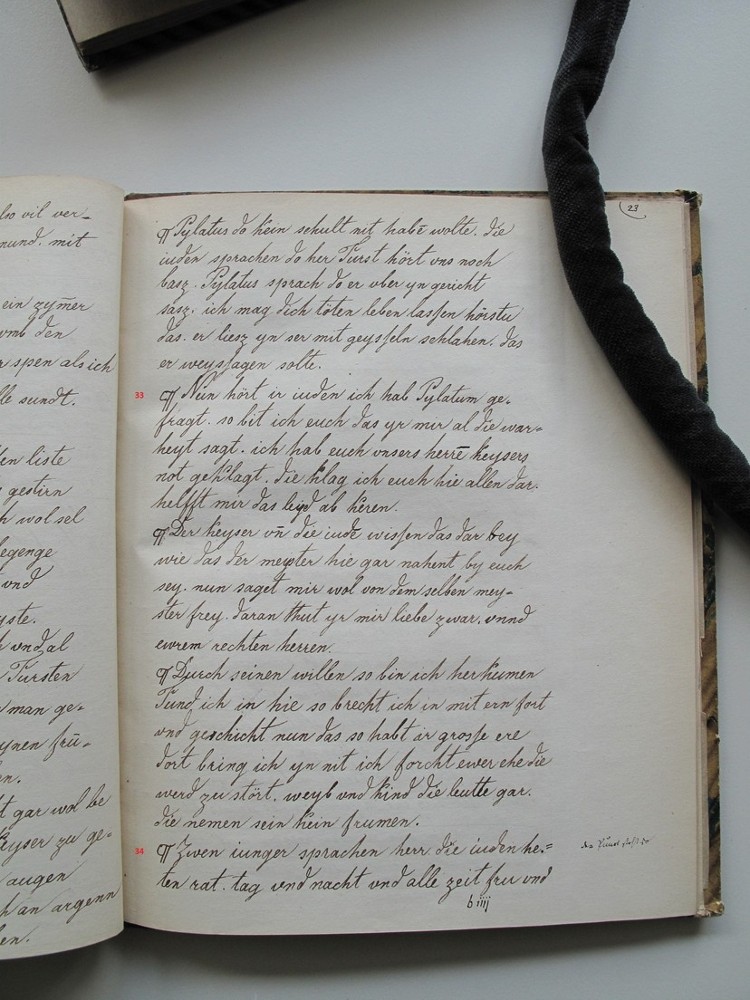 lso vil ver-
mund. mit
ein zym̄er
vmb den
r spen als ich
lle sundt.
den liste
gestirn
h wol sel
legenge
vnd
yste.
h vnd al
Fursten
man ge-
ynen frū-
en.
t gar wol be
Keyser zu ge-
augen
h an argenn
en.
23
¶ Pylatus do kein schult nit habē wolte. die
iuden sprachen do her Furst hört vns noch
basz. Pylatus sprach do er vber yn gericht
sasz. ich mag dich töten leben lassen hörstu
das. er liesz yn ser mit geysseln schlahen. das
er weyssagen solte.
33
¶ Nun hört ir iuden ich hab Pylatum ge-
fragt. so bit ich euch das yr mir al die war=
heyt sagt. ich hab euch vnsers herrē keysers
not geklagt. die klag ich euch hie allen dar.
helfft mir das leyd ab keren.
¶ Der keyser vn̄ die iudē wissen das dar bey
wie das der meyster hie gar nahent by euch
sey. nun saget mir wol von dem selben mey-
ster frey. daran thut yr mir liebe zwar. vnnd
ewrem rechten herren.
¶ Durch seinen willen so bin ich her kumen
Fund ich in hie so brecht ich in mit ern fort
vnd geschicht nun das so habt ir grosse ere
dort bring ich yn nit ich forcht ewer ehe die
werd zu stört. weyb vnd kind die leutte gar.
die nemen sein kein frumen.
34
¶ Zwen iunger sprachen herr die iuden he-=
ten rat. tag vnd nacht vnd alle zeit fru vnd
b iiij